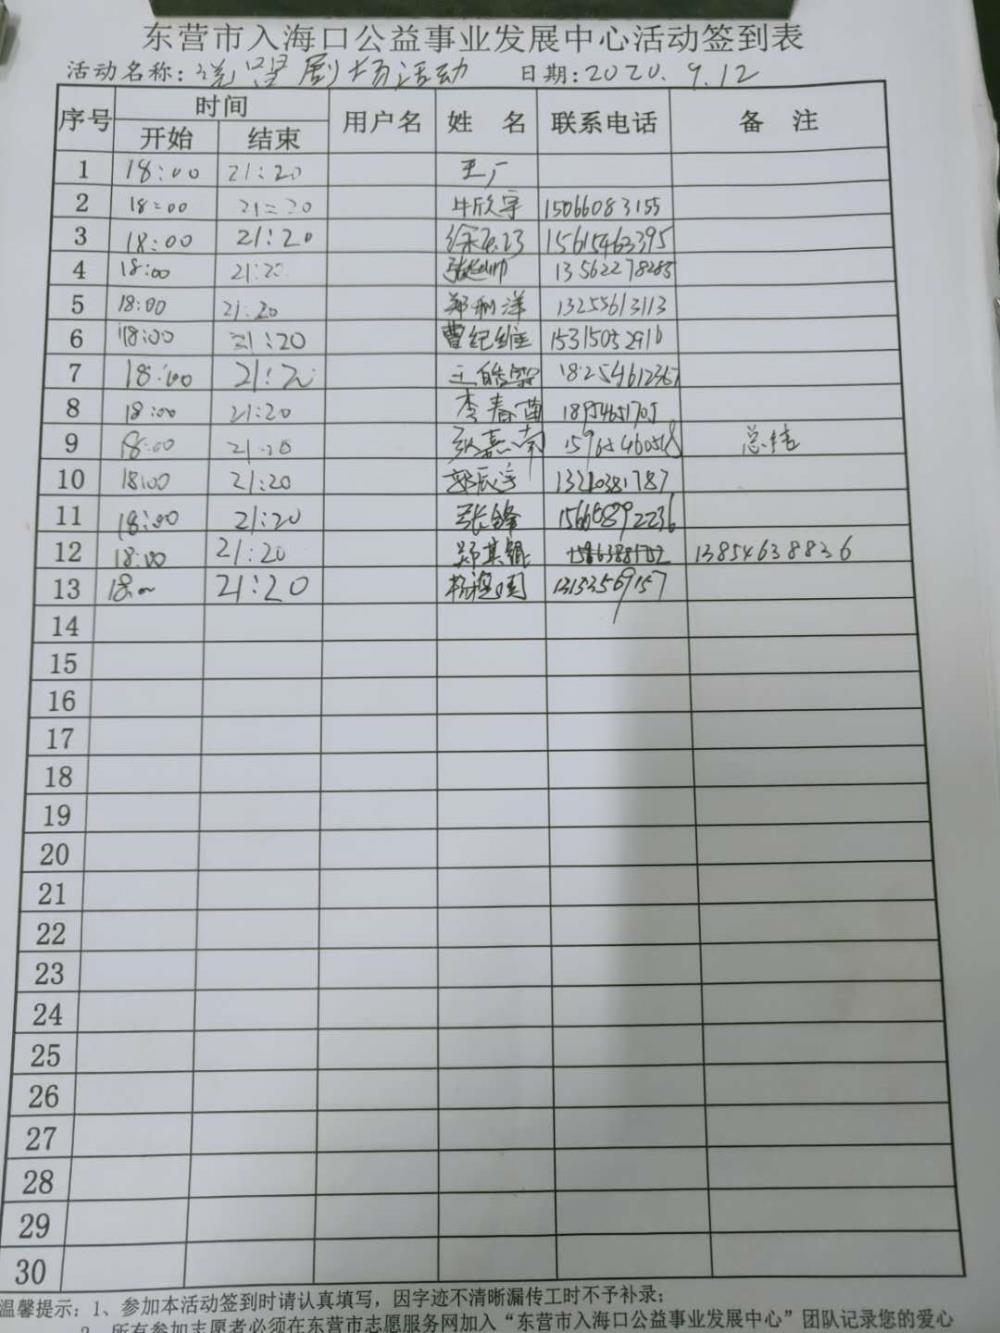 东营市入海口公益事业发展中心活动签到表
活动名称: 剧场活动 日期:2020.9.12
序号 时间 用户名 姓 名 联系电话 备 注
开始 结束
1 18:00 21:20 王广
2 18:00 21:20 牛欣宇 15066083155
3 18:00 21:20 15615463395
4 18:00 21:20 13562278285
5 18:00 21:20 郑利洋 13255613113
6 18:00 21:20 曹纪维 15315052910
7 18:00 21:20 王皓 18254612367
8 18:00 21:20 李春苗
9 18:00 21:20 张嘉南 总结
10 18:00 21:20 郭辰宇 13210381787
11 18:00 21:20 张锋 15660892236
12 18:00 21:20 郑其锟 13854638836
13 18:00 21:20
14
15
16
17
18
19
20
21
22
23
24
25
26
27
28
29
30
温馨提示:1、参加本活动签到时请认真填写,因字迹不清晰漏传工时不予补录;
2、所有参加志愿者必须在东营市志愿服务网加入“东营市入海口公益事业发展中心”团队记录您的爱心